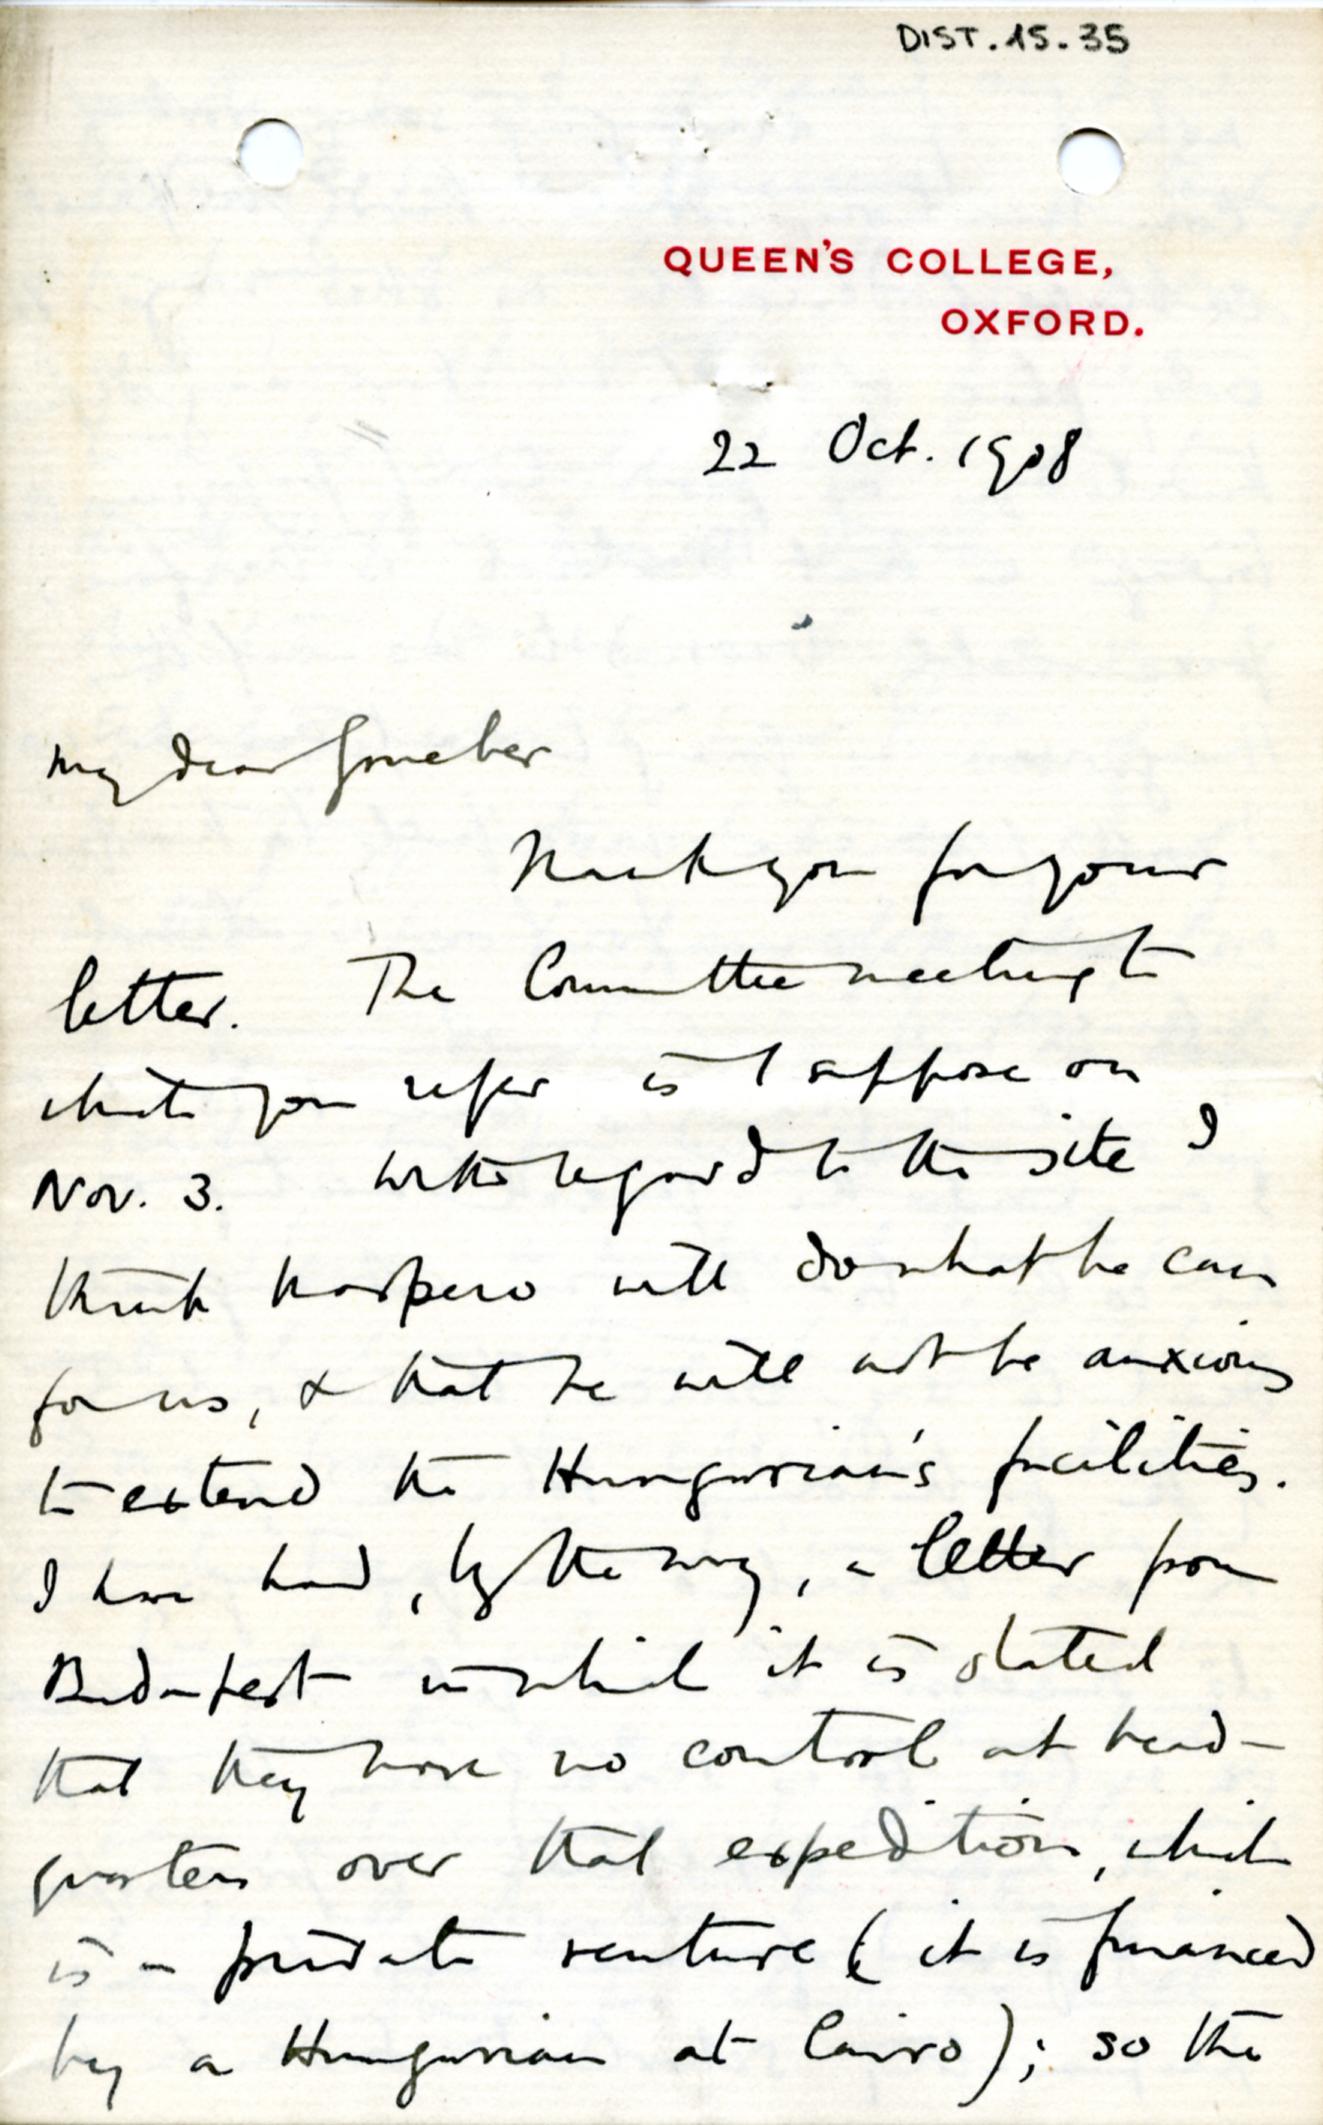 DIST.15.35
QUEEN'S COLLEGE,
OXFORD.
22 Oct. 1908
My dear Grueber
Thank you for your
letter. The Committee meeting to
which you refer is I suppose on
Nov. 3. With regard to the site I
think Maspero will do what he can
for us, & that he will not be anxious
to extend the Hungarian's facilities.
I have had, by the way, a letter from
Budapest in which it is stated
that they have no control at head-
quarters over that expedition, which
is a private venture (it is financed
by a Hungarian at Cairo); so the